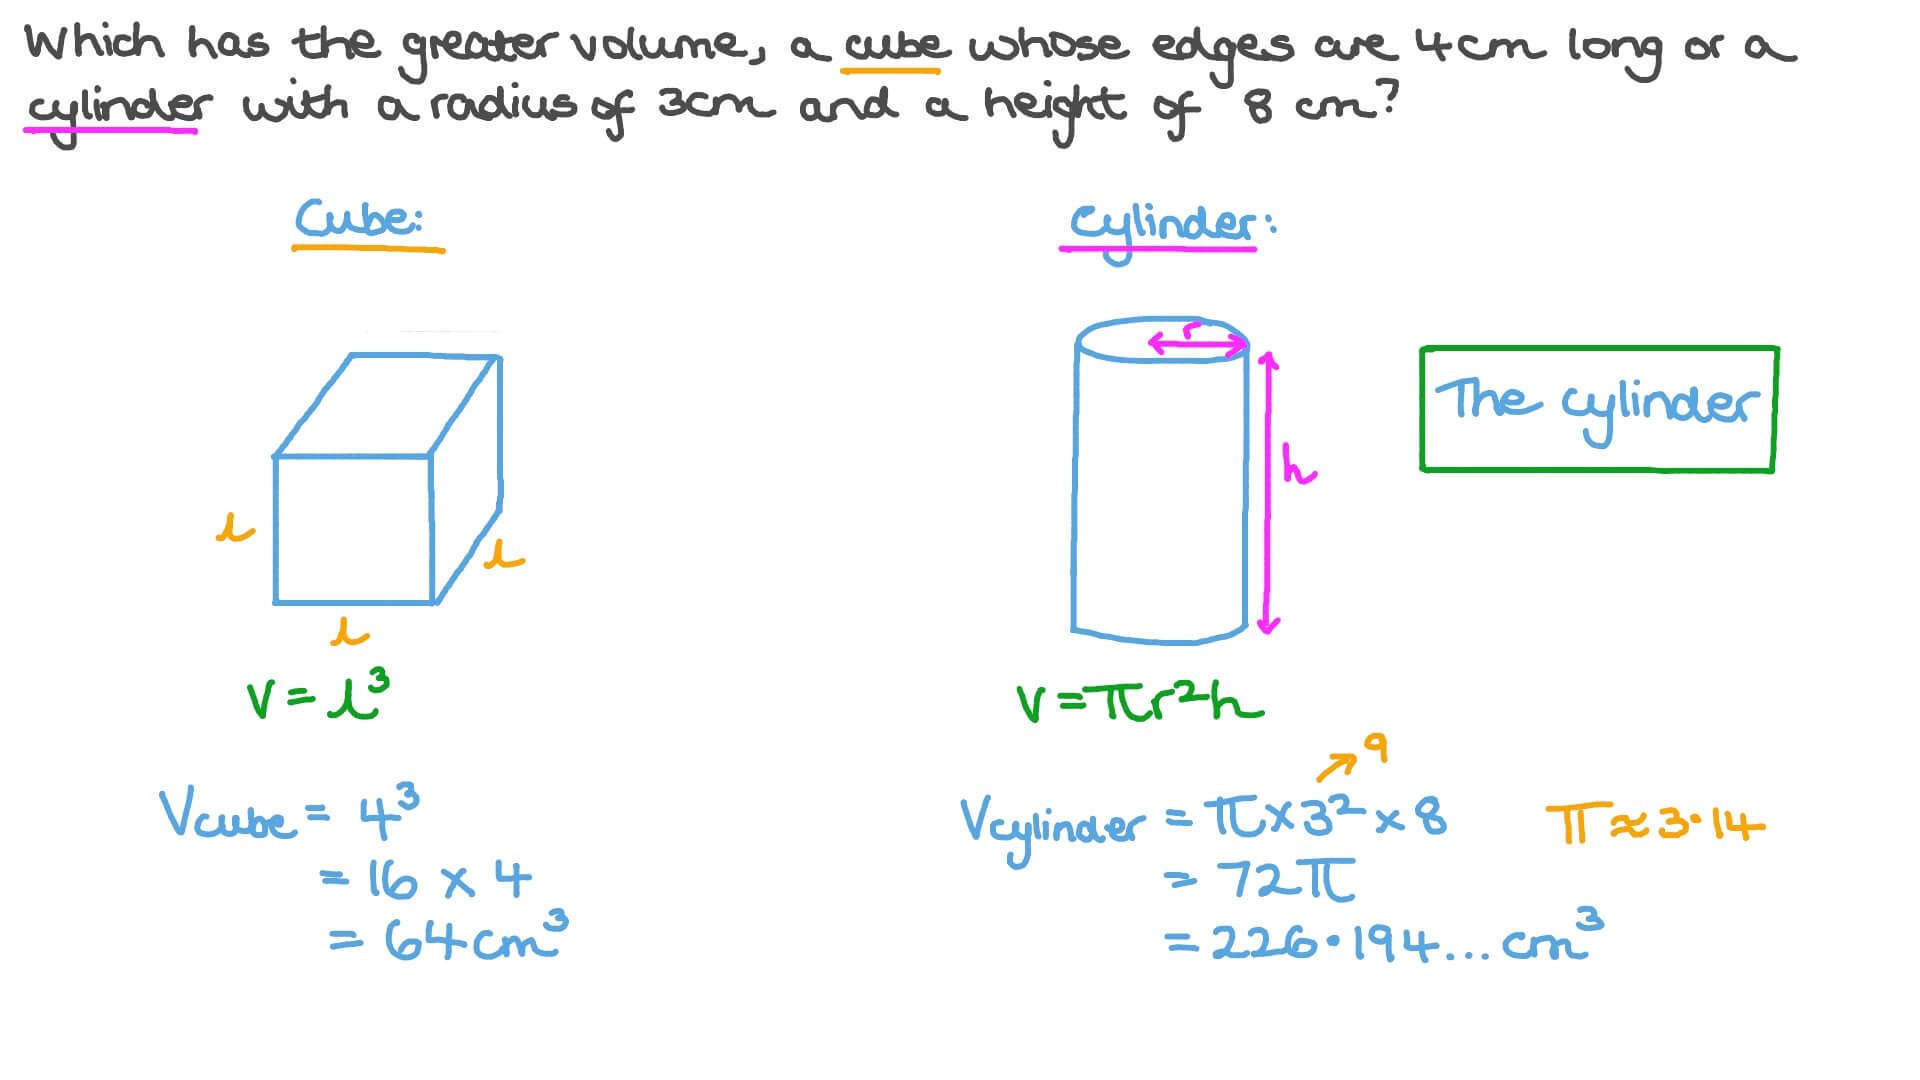 Which has the greater volume, a cube whose edges are 4cm long or a
cylinder with a radius of 3cm and a height of 8 cm?
Cube:
l
l
l
V = l³
Vcube = 4³
= 16 × 4
= 64cm³
Cylinder:
r
h
V = πr²h
9
Vcylinder = π × 3² × 8
= 72π
= 226·194... cm³
π ≈ 3·14
The cylinder